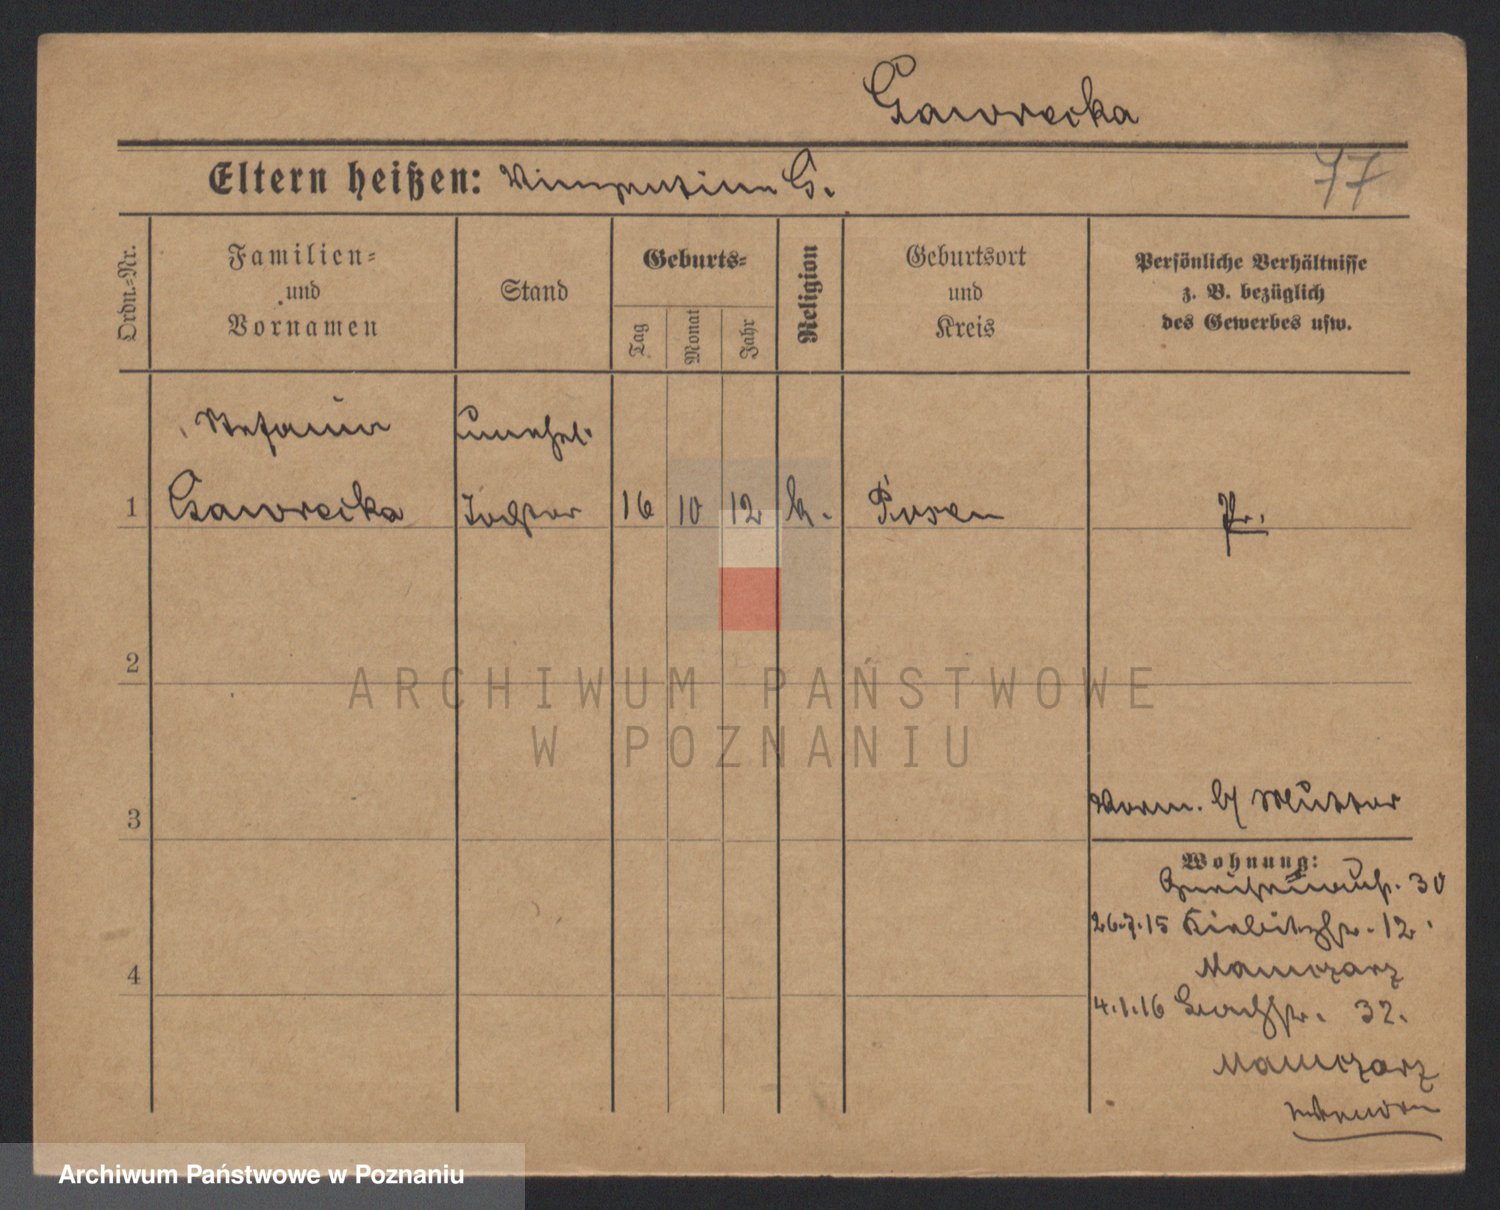 Gaworecka
Eltern heißen: G.
77
Ordn.-Nr.
Familien-
und
Vornamen
Stand
Geburts-
Tag
Monat
Jahr
Religion
Geburtsort
und
Kreis
Persönliche Verhältnisse
z. B. bezüglich
des Gewerbes usw.
Stefania unehel.
1 Gaworecka Tochter 16 10 12 k. Posen Pr.
2
3
Vorm. Mutter
Wohnung:
30
26.7.15 Kiebitzstr. 12
Mamczarz
4
4.1.16 32.
Mamczarz
wenden
ARCHIWUM PAŃSTWOWE
W POZNANIU
Archiwum Państwowe w Poznaniu